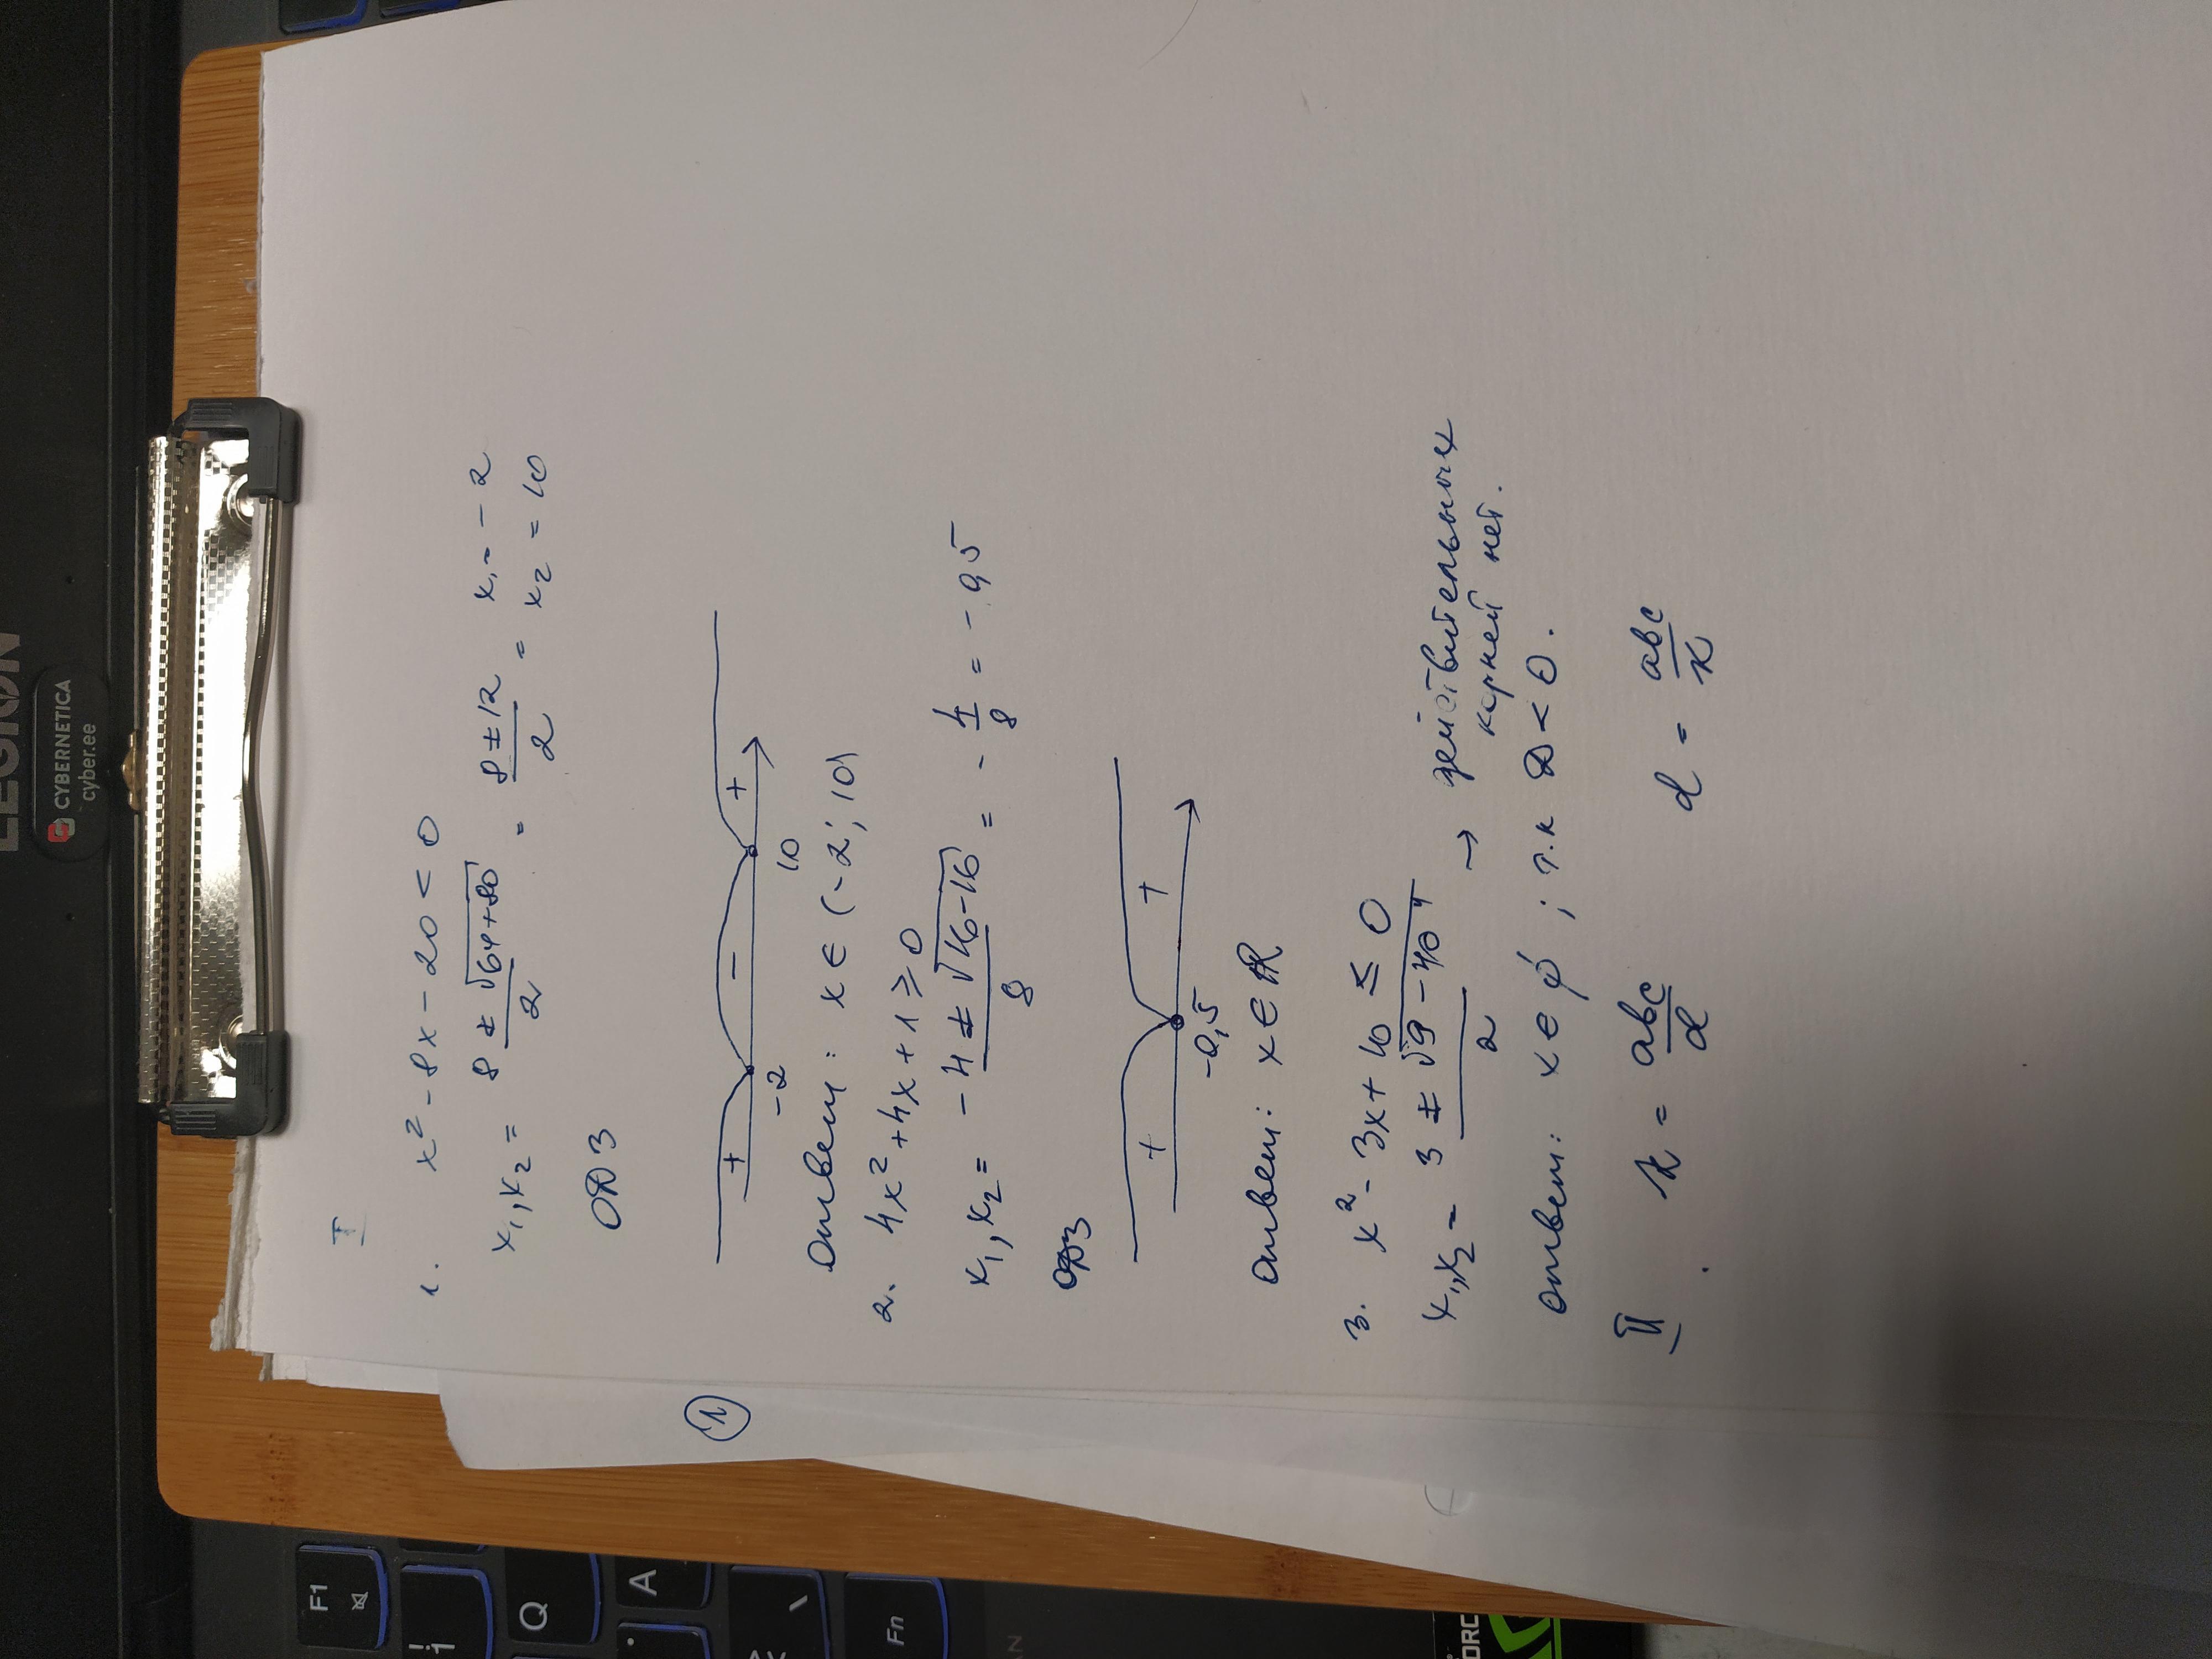 I
1. x² - 8x - 20 < 0
x₁,x₂ = (8 ± √(64+80))/2 = (8 ± 12)/2 = x₁ = -2
x₂ = 10
ОДЗ
+ - +
-2 10
Ответ: x ∈ (-2; 10)
2. 4x² + 4x + 1 ≥ 0
x₁, x₂ = (-4 ± √(16-16))/8 = -4/8 = -0,5
ОДЗ
+ +
-0,5
Ответ: x ∈ R
3. x² - 3x + 10 ≤ 0
x₁,x₂ = (3 ± √(9 - 40))/2 → действительных
корней нет.
Ответ: x ∈ ∅ ; т.к D < 0.
II k = abc/d d = abc/k
1
LEGION
CYBERNETICA
cyber.ee
F1
! 1
Q
A
\
Fn
N
ORC